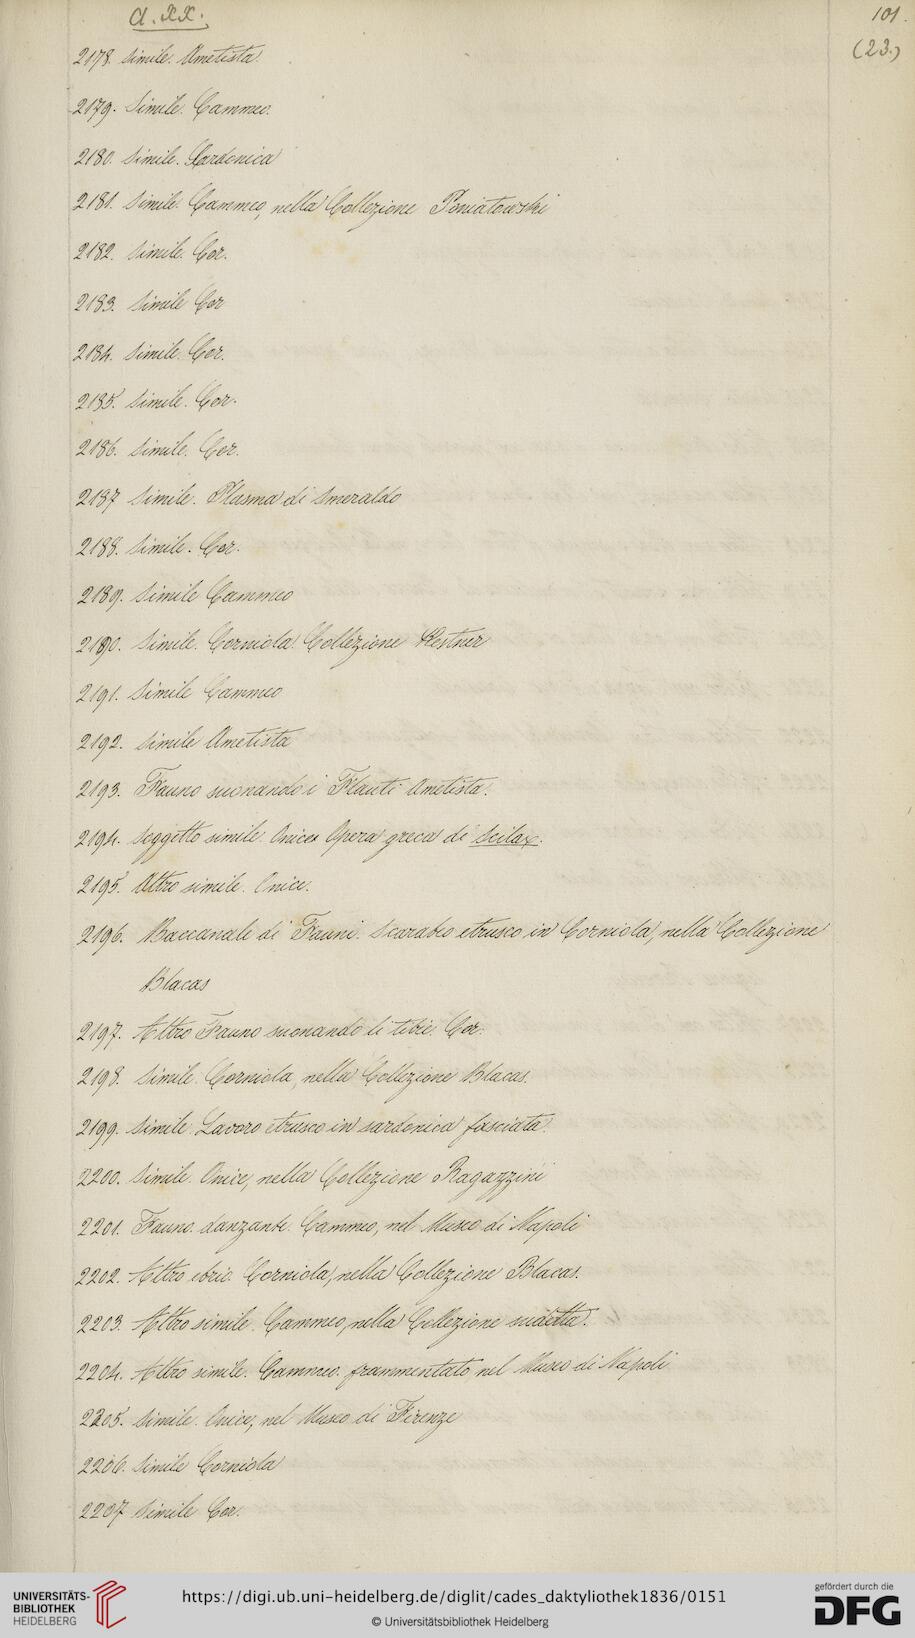 a. XX.
101.
(23.)
2178. Simile. Ametista.
2179. Simile. Cammeo.
2180. Simile. Sardonica
2181. Simile. Cammeo, nella Collezione Poniatowski
2182. Simile. Cor.
2183. Simile Cor
2184. Simile. Cor.
2185. Simile. Cor.
2186. Simile. Cor.
2187 Simile. Plasma di Smeraldo
2188. Simile. Cor.
2189. Simile Cammeo
2190. Simile. Corniola. Collezione Kestner
2191. Simile Cammeo
2192. Simile Ametista
2193. Fauno suonando i Flauti Ametista.
2194. Soggetto simile. Onice. Opera greca di Scilax.
2195. Altro simile. Onice.
2196. Baccanale di Fauni. Scarabeo etrusco in Corniola, nella Collezione
Blacas
2197. Altro Fauno suonando le tibie. Cor.
2198. Simile. Corniola, nella Collezione Blacas.
2199. Simile. Lavoro etrusco in sardonica fasciata.
2200. Simile. Onice, nella Collezione Ragazzini
2201. Fauno danzante. Cammeo, nel Museo di Napoli
2202. Altro ebrio. Corniola, nella Collezione Blacas.
2203. Altro simile. Cammeo, nella Collezione sudetta.
2204. Altro simile. Cammeo frammentato, nel Museo di Napoli
2205. Simile. Onice, nel Museo di Firenze
2206. Simile Corniola
2207 Simile Cor.
UNIVERSITÄTS-
BIBLIOTHEK
HEIDELBERG
https://digi.ub.uni-heidelberg.de/diglit/cades_daktyliothek1836/0151
© Universitätsbibliothek Heidelberg
gefördert durch die
DFG